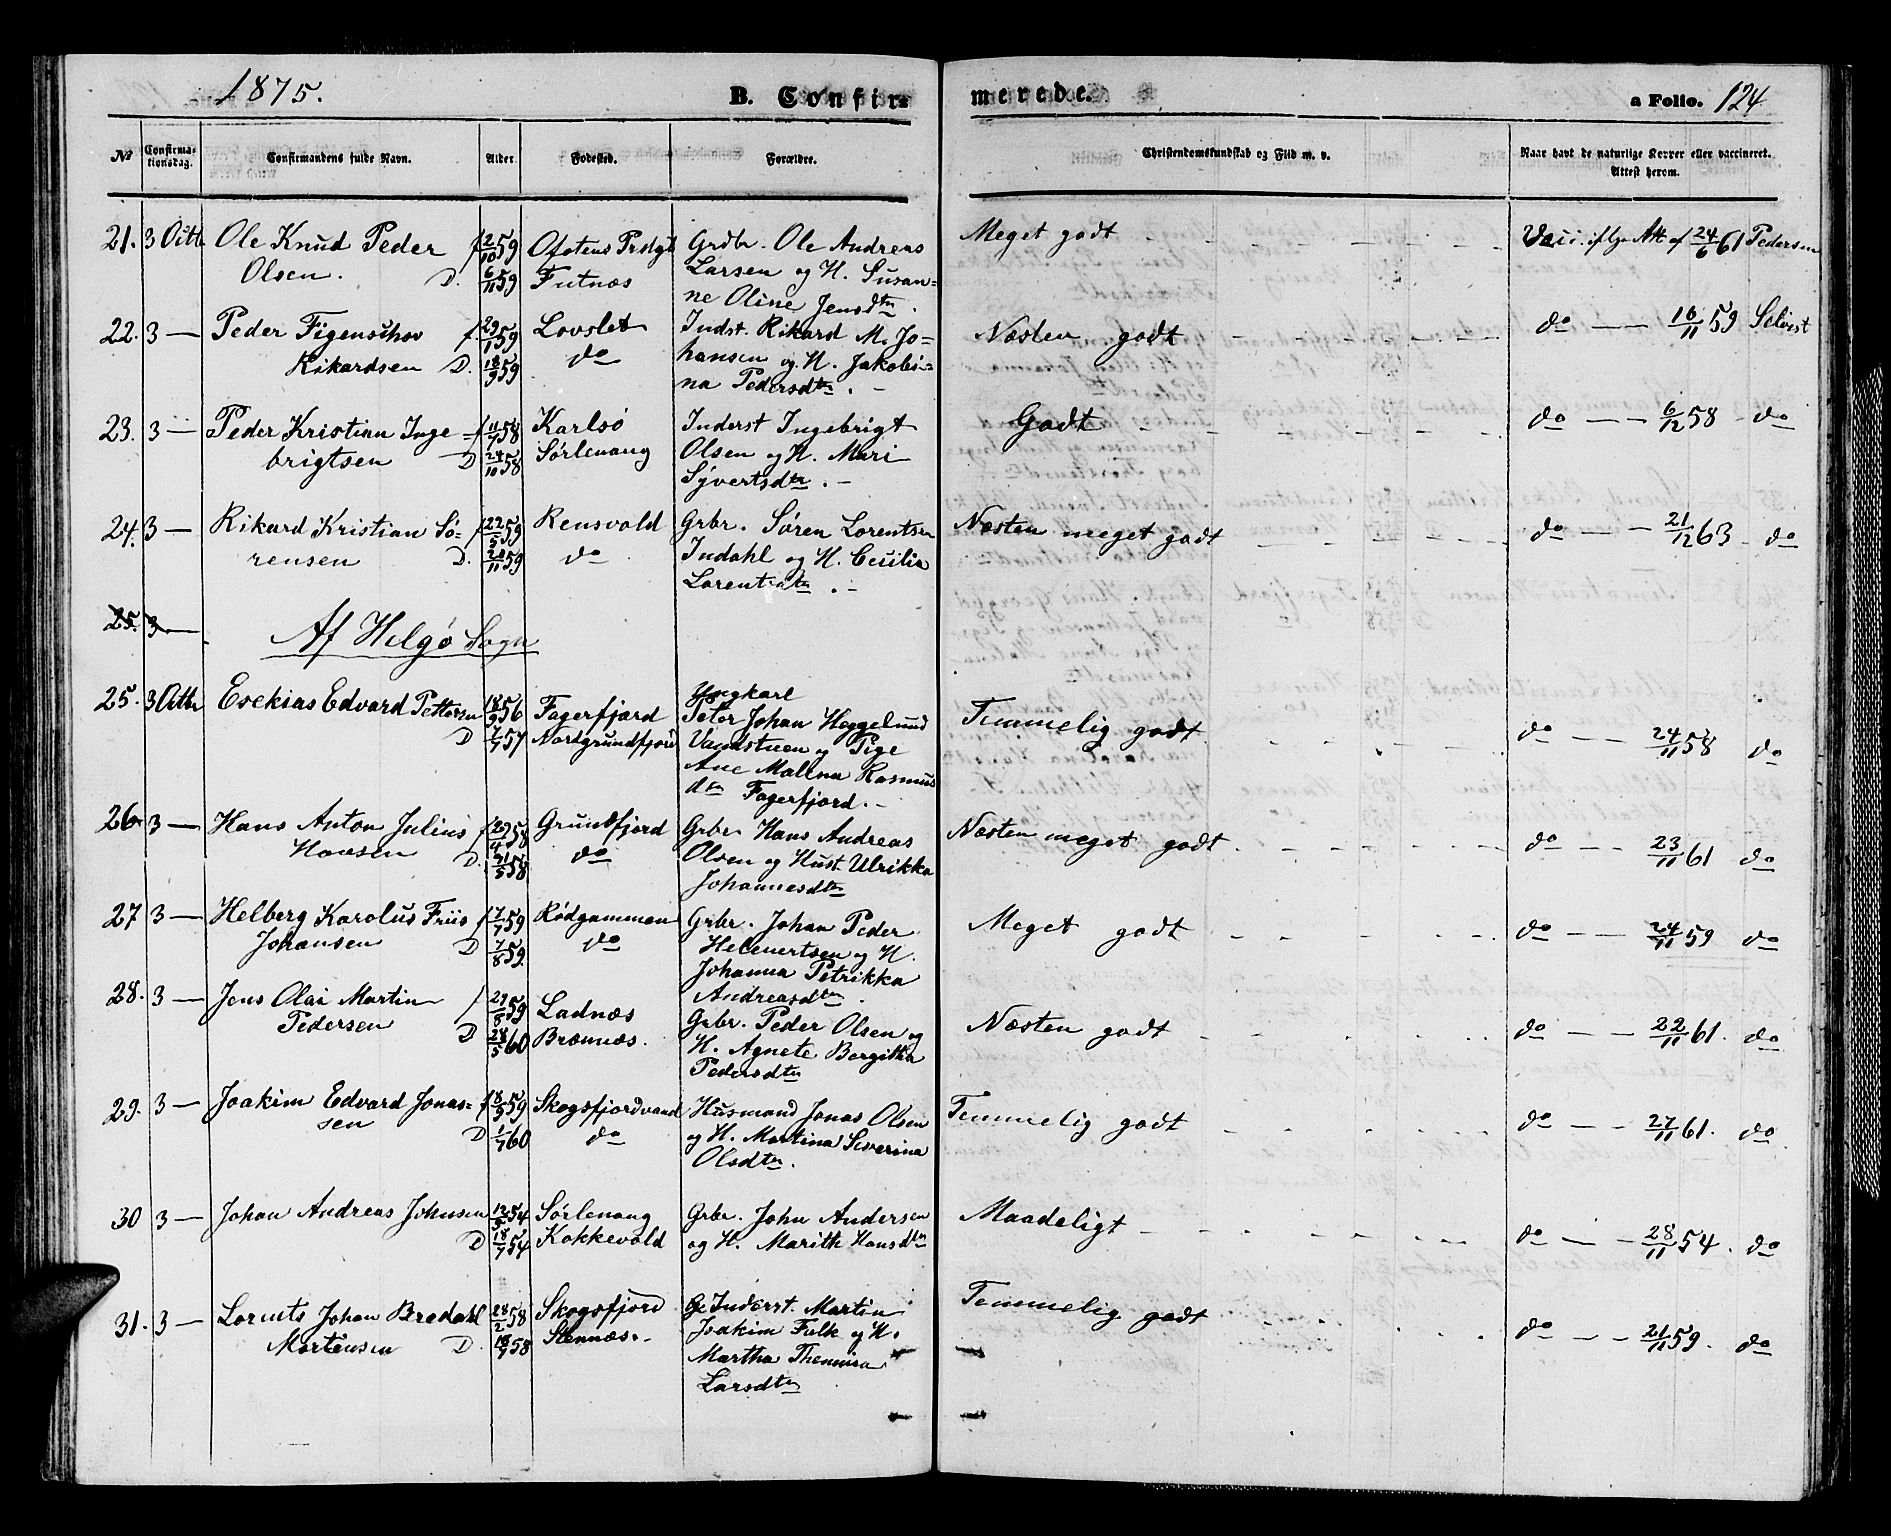 1875.
B. Confir=
merede.
a Folio. 124
No
Confirma-
tionsdag.
Confirmandens fulde Navn.
Alder.
Fødested.
Forældre.
Christendomskundskab og Flid m. v.
Naar havt de naturlige Kopper eller vaccineret.
Attest herom.
21. 3 Octb Ole Knud Peder f. 2/10 59 Ofotens Prstgd Grdbr. Ole Andreas Meget godt Vacc. iflge Att af 24/6 61 Pedersen
Olsen. D. 6/11 59 Futnæs Larsen og H. Susan-
ne Oline Jensdtr.
22. 3 — Peder Figenschov f. 29/1 59 Lovslet Indst. Rikard M. Jo- Næsten godt do — — 16/11 59 Selqvist
Rikardsen D. 18/9 59 do hansen og H. Jakobi-
na Pedersdtr. -
23. 3 — Peder Kristian Inge- f 11/7 58 Karlsö Inderst Ingebrigt Godt do — — 6/12 58 - do
brigtsen D 24/10 58 Sörlenang Olsen og H. Mari
Syvertsdtr. -
24. 3 — Rikard Kristian Sö- f 22/5 59 Rensvold Grbr. Sören Lorentsen Næsten meget godt do — 21/12 63 do
rensen D. 20/11 59 do Indahl og H. Cecilia
Lorentsdtr. -
25. 3 —
Af Helgö Sogn
25. 3 Octbr Esekias Edvard Pettersen 18/9 56 Fagerfjord Ungkarl
Peter Johan Heggelund Temmelig godt do — — 24/11 58 do
D 7/7 57 Nordgrundfjord Vandstuen og Pige
Ane Malena Rasmus
dtr Fagerfjord. -
26 3 — Hans Anton Julius f 29/4 58 Grundfjord Grbr Hans Andreas Næsten meget godt do — — 23/11 61 do
Hansen D. 31/5 58 do Olsen og Hust Ulrikka
Johannesdtr
27 3 — Helberg Karolus Friis f 7/7 59 Rödgammen Grbr. Johan Peder Meget godt do — — 24/11 59 do
Johansen D 7/8 59. do Helenertsen og H.
Johanna Petrikka
Andreasdtr.
28. 3 — Jens Olai Martin f 29/8 59 Ladnæs Grbr. Peder Olsen og Næsten godt do — — 22/11 61. do
Pedersen D 28/5 60 Bræmnæs. H. Agnete Bergitha
Pedersdtr
29. 3 — Joakim Edvard Jonas- f 8/5 59 Skogsfjordvand Husmand Jonas Olsen Temmelig godt do — — 27/11 61. do
sen D 1/7 60 do og H. Martina Severina
Olsdtr.
30 3 — Johan Andreas Johnsen 12/5 54 Sörlenang Grbr. John Andersen Maadeligt do — — 28/11 54. do
D 18/7 54 Kokkevold og H. Marith Hansdtr
31. 3 — Lorents Johan Bredahl 28/2 58 Skogsfjord Inderst. Martin Temmelig godt do — — 21/11 59. do
Mortensen D. 18/7 58 Stennæs. Joakim Falk og H.
Martha Themina
Larsdtr